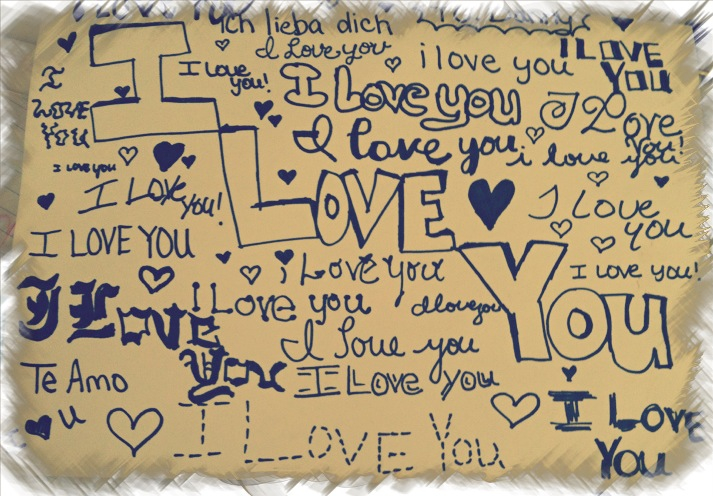 I Love You
Ich lieba dich
I Love you
I Love
you!
i love you
I LOVE
YOU
I Love you
I Love
You!
I
LOVE
YOU
I love you
i love you!
I love you
I Love
you!
I Love
you
I LOVE YOU
I LOVE YOU
i Love you
I love you!
I Love
You
I Love you
I love you
I love you
Te Amo
I Love You
I Love
You
u
I Love You